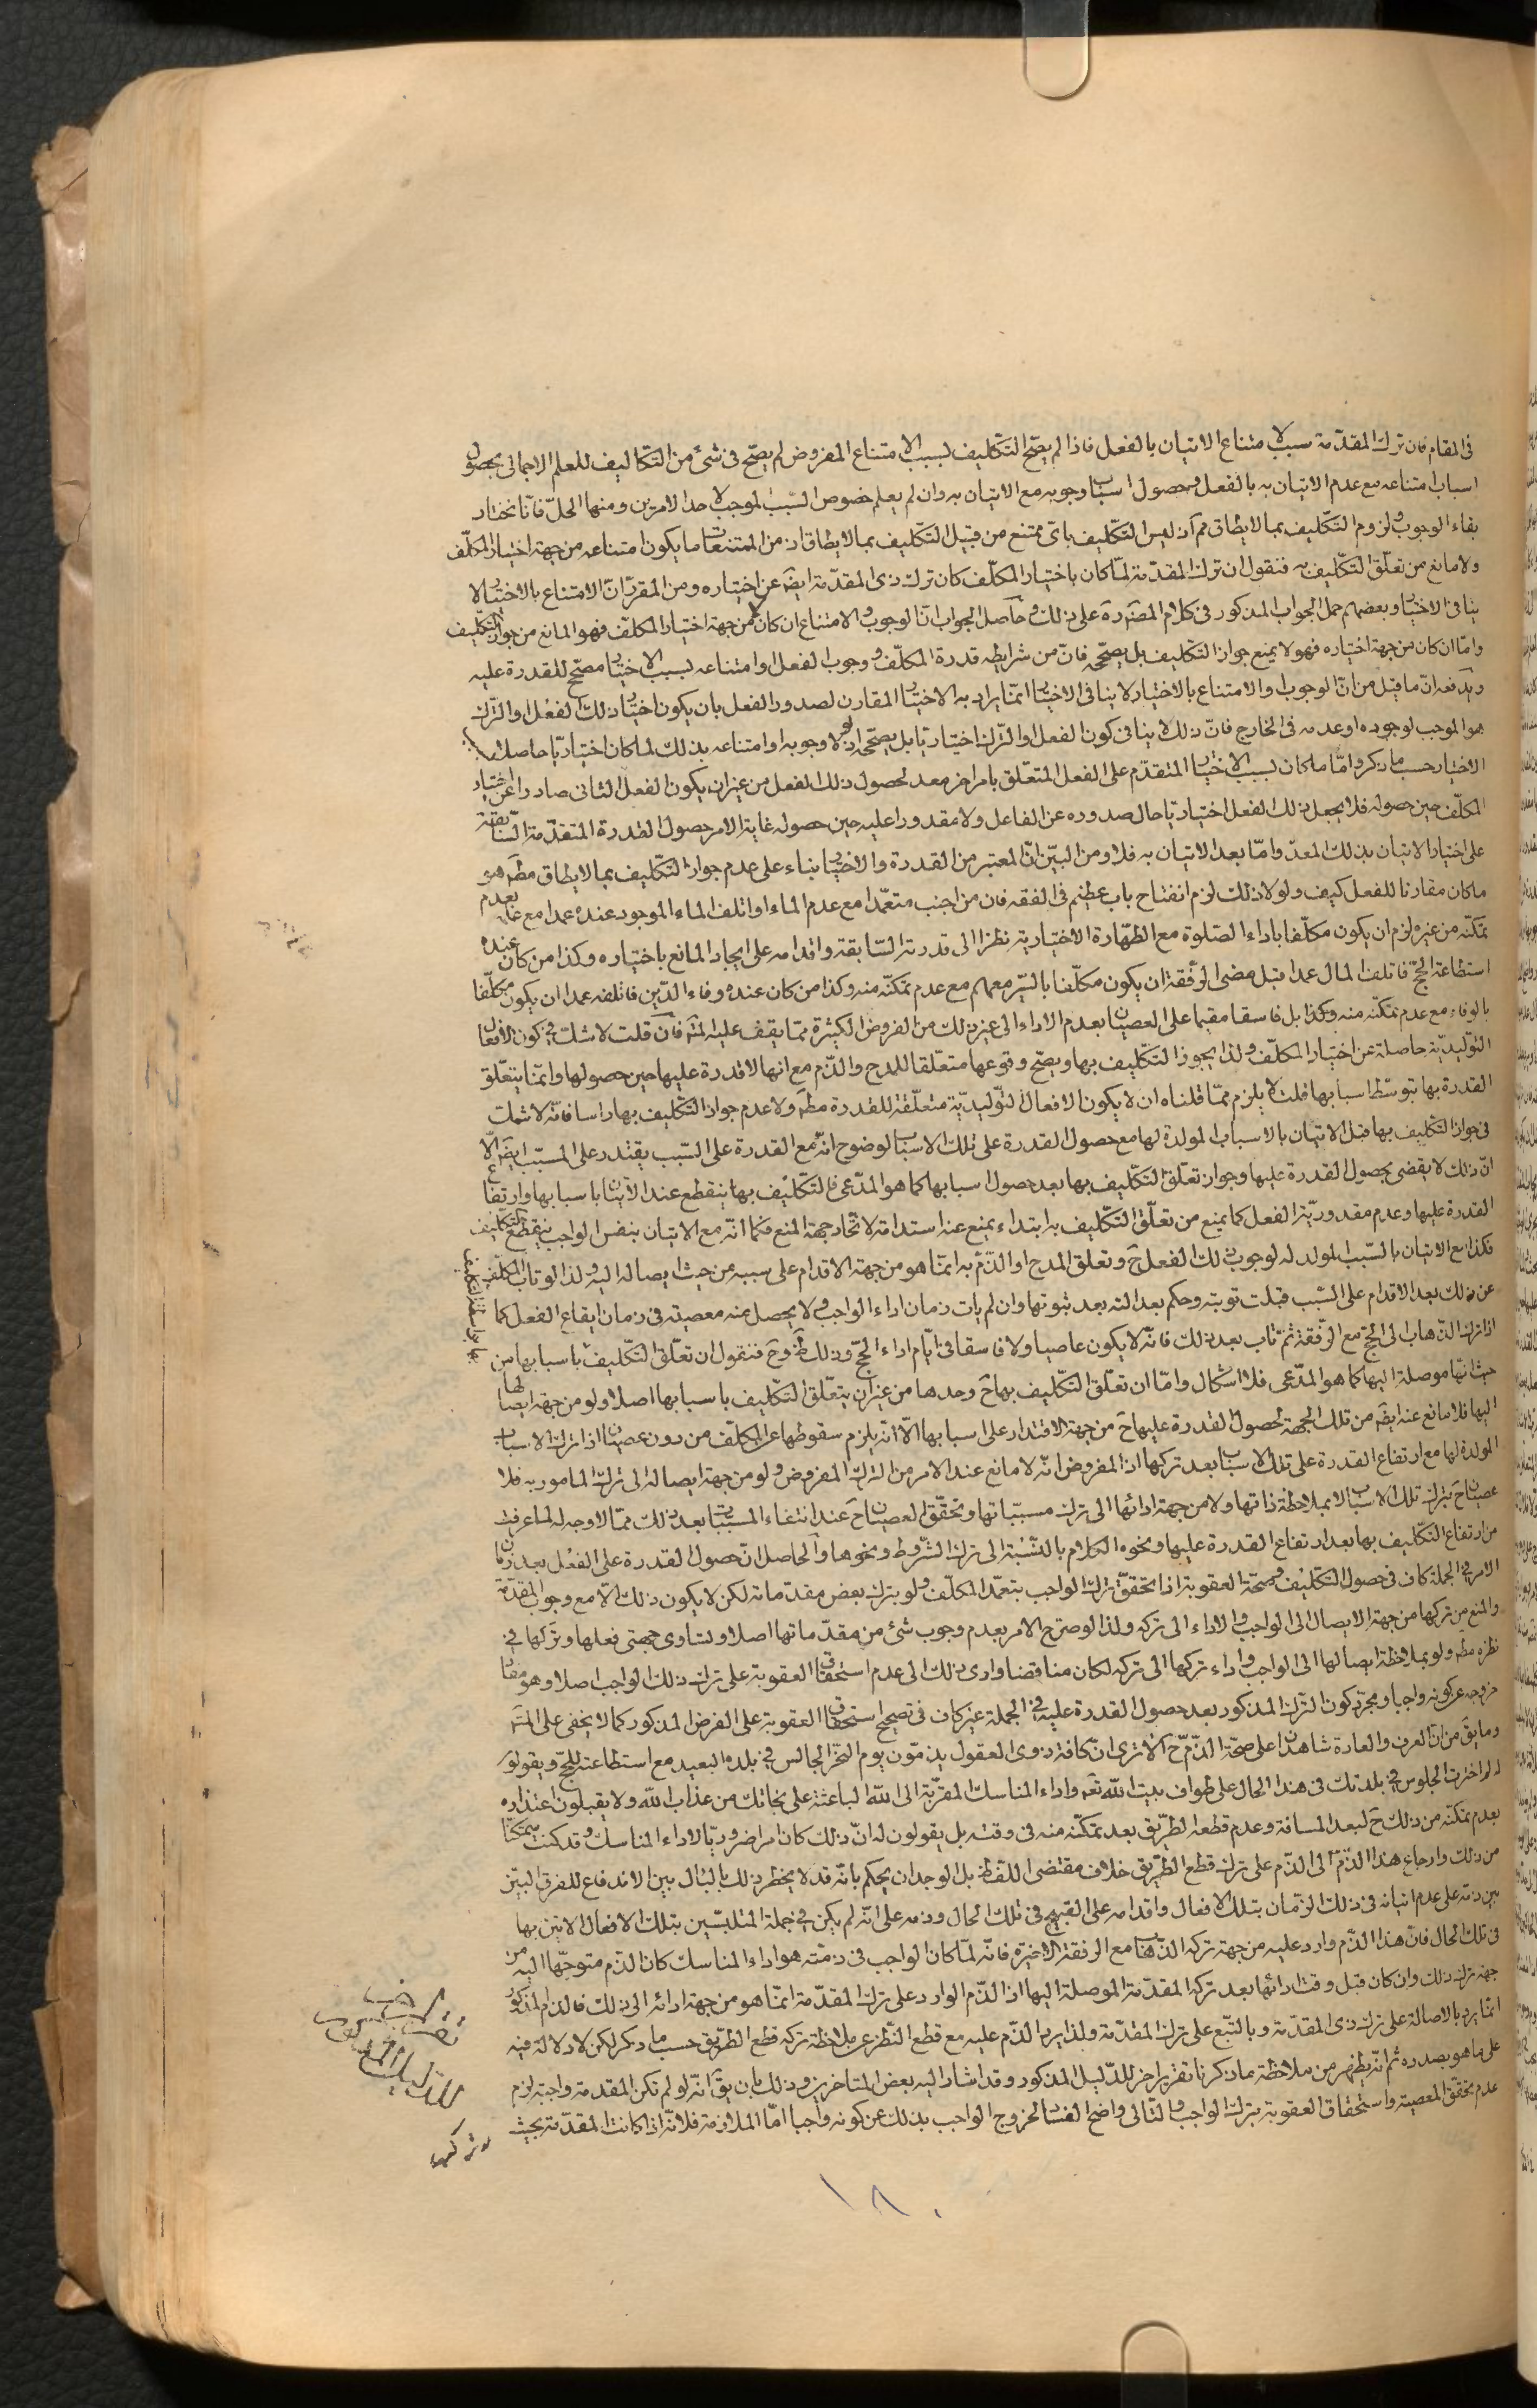 فى المقام فان ترك المقدّمة سبب لامتناع الاتيان بالفعل فاذا لم يصّح التكليف لسبب الامتناع المفروض لم يصّح فى شئ من التكاليف للعلم الاجمالى بحصول
اسباب امتناعه مع عدم الاتيان به بالفعل وحصول اسباب وجوبه مع الاتيان به وان لم يعلم خصوص السّبب الموجب لاحد الامرين ومنها الحلّ فانّا نختار
بقاء الوجوب ولزوم التّكليف بما لايطاق مم اذ ليس التّكليف باىّ ممتنع من قبيل التّكليف بما لايطاق اذ من الممتنعات ما يكون امتناعه من جهة اختيار المكلّف
ولا مانع من تعلّق التّكليف به فنقول ان ترك المقدّمة لمّا كان باختيار المكلّف كان ترك ذى المقدّمة ايضَ عن اختياره ومن المقرّر انّ الامتناع بالاختيار لا
ينافى الاختيار وبعضهم حمل الجواب المذكور فى كلام المصَ رهَ على ذلك وحاصل الجواب انّ الوجوب والامتناع ان كان لا من جهة اختيار المكلّف فهو المانع من جواز التّكليف
وامّا ان كان من جهة اختياره فهو لا يمنع جواز التّكليف بل يصحّحه فانّ من شرايطه قدرة المكلّف ووجوب الفعل او امتناعه بسبب الاختيار مصحّح للقدرة عليه
ويدفعه انّ ما قيل من انّ الوجوب او الامتناع بالاختيار لا ينافى الاختيار انّما يراد به الاختيار المقارن لصدور الفعل بان يكون اختيار ذلك الفعل او الترك
هو الموجب لوجوده او عدمه فى الخارج فانّ ذلك لا ينافى كون الفعل او التّرك اختياريّا بل يصحّحه اذ لولا وجوبه او امتناعه بذلك لما كان اختياريّا حاصلا
الاختيار حسب ما ذكر وامّا ما كان بسبب الاختيار المتقدّم على الفعل المتعلّق بامر اخر معد لحصول ذلك الفعل من غير ان يكون الفعل الثانى صادرا عن اختيار
المكلّف حين حصوله فلا يجعل ذلك الفعل اختياريّا حال صدوره عن الفاعل ولا مقدورا عليه حين حصوله غاية الامر حصول القدرة المتقدّمة السّابقة
على اختيار الاتيان بذلك المعدّ وامّا بعد الاتيان به فلا ومن البيّن انّ المعتبر من القدرة والاختيار بناء على عدم جواز التّكليف بما لايطاق مطَم هو
ما كان مقارنا للفعل كيف ولولا ذلك لزم انفتاح باب عظيم فى الفقه فان من اجنب متعمّدا مع عدم الماء او اتلف الماء الموجود عنده عمدا مع علمه بعدم
تمكّنه من غيره لزم ان يكون مكلّفا باداء الصّلوة مع الطّهارة الاختيارية نظرا الى قدرته السّابقة واقدامه على ايجاد المانع باختياره وكذا من كان عنده
استطاعة الحجّ فاتلف المال عمدا قبل مضى الرّفقة ان يكون مكلّفا بالسّير معهم مع عدم تمكنّه منه وكذا من كان عنده وفاء الدّين فاتلفه عمدا ان يكون مكلّفا
بالوفاء مع عدم تمكنّه منه وهكذا بل فاسقا مقيما على العصيان بعدم الاداء الى غير ذلك من الفروض الكثيرة ممّا يقف عليه المتتبع فان قلت لا شكّ فى كون الافعال
التّوليديّة حاصلة عن اختيار المكلّف ولذا يجوز التّكليف بها ويصحّ وقوعها متعلّقا للمدح والذّم مع انها لا قدرة عليها حين حصولها وانّما يتعلّق
القدرة بها بتوسّط اسبابها قلت لا يلزم ممّا قلناه ان لا يكون الافعال التّوليديّة متعلّقة للقدرة مطَم ولا عدم جواز التّكليف بها راسا فانّه لا شكّ
فى جواز التّكليف بها قبل الاتيان بالاسباب المولدة لها مع حصول القدرة على تلك الاسباب لوضوح انّه مع القدرة على السّبب يقتدر على المسبّب ايضَ الّا
انّ ذلك لا يقضى بحصول القدرة عليها وجواز تعلّق التّكليف بها بعد حصول اسبابها كما هو المدّعى فالتّكليف بها ينقطع عند الاتيان باسبابها وارتفاع
القدرة عليها وعدم مقدوريّة الفعل كما يمنع من تعلّق التّكليف به ابتداء يمنع عنه استدامة لاتّحاد جهة المنع فكما انّه مع الاتيان بنفس الواجب ينقطع التّكليف
فكذا مع الاتيان بالسّبب المولد له لوجوب ذلك الفعل حَ وتعلق المدح او الذّم به انّما هو من جهة الاقدام على سببه من حيث ايصاله اليه ولذا لو تاب المكلّف
عن ذلك بعد الاقدام على السّبب قبلت توبته وحكم بعدالته بعد ثبوتها وان لم يات زمان اداء الواجب ولا يحصل منه معصية فى زمان ايقاع الفعل كما
اذا ترك الذّهاب الى الحجّ مع الرّفقة ثمّ تاب بعد ذلك فانّه لا يكون عاصيا ولا فاسقا فى ايّام اداء الحجّ وذلك ظَ وحَ فنقول ان تعلّق التّكليف باسبابها من
حيث انّها موصلة اليها كما هو المدّعى فلا اشكال وامّا ان تعلّق التّكليف بها حَ وحدها من غير ان يتعلّق التّكليف باسبابها اصلا ولو من جهة ايصالها
اليها فلا مانع عنه ايضَ من تلك الجهة لحصول القدرة عليها حَ من جهة الاقتدار على اسبابها الّا انّه يلزم سقوطها عن المكلّف من دون عصيان اذا ترك الاسباب
المولدة لها مع ارتفاع القدرة على تلك الاسباب بعد تركها اذ المفروض انّه لا مانع عند الامر من الترك المفروض ولو من جهة ايصاله الى ترك المامور به فلا
عصيان حَ بترك تلك الاسباب لا بملاحظة ذاتها ولا من جهة ادائها الى ترك مسبّباتها وتحقّق العصيان حَ عند انتفاء المسبّبات بعد ذلك ممّا لا وجه له لما عرفت
من ارتفاع التّكليف بها بعد ارتفاع القدرة عليها ونحوه الكلام بالنّسبة الى ترك الشّروط ونحوها والحاصل انّ حصول القدرة على الفعل بعد زمان
الامر فى الجملة كاف فى حصول التّكليف وصحّة العقوبة اذا تحقّق ترك الواجب بتعمّد المكلّف ولو بترك بعض مقدّماته لكن لا يكون ذلك الّا مع وجوب المقدّمة
والمنع من تركها من جهة الايصال الى الواجب والاداء الى تركه ولذا لو صرّح الامر بعدم وجوب شئ من مقدّماتها اصلا وتساوى جهتى فعلها وتركها فى
نظره مطَم ولو بملاحظة ايصالها الى الواجب واداء تركها الى تركه لكان مناقضا وادى ذلك الى عدم استحقاق العقوبة على ترك ذلك الواجب اصلا وهو مفاد
خروجه عن كونه واجبا ومجرّد كون التّرك المذكور بعد حصول القدرة عليه فى الجملة غير كاف فى تصحيح استحقاق العقوبة على الفرض المذكور كما لا يخفى على المتتبع
وما يقَ من انّ العرف والعادة شاهدان على صحّة الذّم حَ الا ترى انّ كافة ذوى العقول يذمّون يوم النّحر الجالس فى بلده البعيد مع استطاعته للحجّ ويقولون
له لم اخترت الجلوس فى بلدتك فى هذا الحال على طواف بيت اللّه تعَم واداء المناسك المقرّبة الى اللّه الباعثة على نجاتك من عذاب اللّه ولا يقبلون اعتذاره
بعدم تمكنّه من ذلك حَ لبعد المسافة وعدم قطعه الطّريق بعد تمكّنه منه فى وقته بل يقولون له انّ ذلك كان امرا ضروريّا لاداء المناسك وقد كنت متمكّنا
من ذلك وارجاع هذا الذّم الى الذّم على ترك قطع الطّريق خلاف مقتضى اللّفظ بل الوجدان يحكم بانّه قد لا يخطر ذلك بالبال بين الاندفاع للفرق البيّن
بين ذمّه على عدم اتيانه فى ذلك الزّمان بتلك الافعال واقدامه على القبيح فى تلك الحال وذمه على انّه لم يكن فى جملة المتلبّسين بتلك الافعال الاتين بها
فى تلك الحال فانّ هذا الذّم وارد عليه من جهة تركه الذّهاب مع الرفقة الاخيرة فانّه لمّا كان الواجب فى ذمّته هو اداء المناسك كان الذّم متوجّها اليه من
جهة ترك ذلك وان كان قبل وقت ادائها بعد تركه المقدّمة الموصلة اليها اذ الذّم الوارد على ترك المقدّمة انّما هو من جهة ادائه الى ذلك فالذم المذكور
انّما يرد بالاصالة على ترك ذى المقدّمة وبالتّبع على ترك المقدّمة ولذا يرد الذّم عليه مع قطع النّظر عن ملاحظة تركه قطع الطّريق حسب ما ذكر لكن لا دلالة فيه
على ما هو بصدده ثم انّه يظهر من ملاحظة ما ذكرنا تقرير اخر للدّليل المذكور وقد اشار اليه بعض المتاخرين وذلك بان يقَ انّه لو لم تكن المقدمة واجبة لزم
عدم تحقّق المعصية واستحقاق العقوبة بترك الواجب والتّالى واضح الفساد لخروج الواجب بذلك عن كونه واجبا امّا الملازمة فلانّه اذا كانت المقدّمة بحيث
تقرير اخر
للدليل المذكور
١٨٠